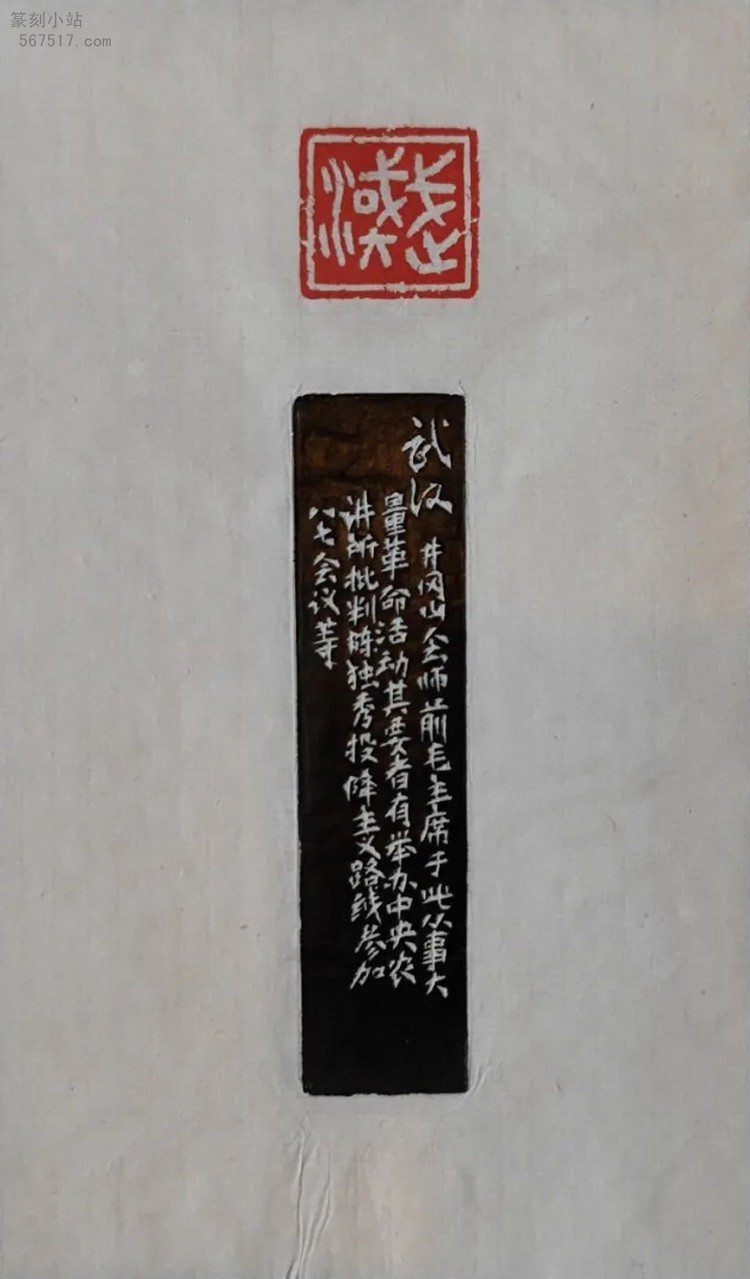 篆刻小站
567517.com
武漢
武汉 井冈山会师前毛主席于此从事大
量革命活动其要者有举办中央农
讲所批判陈独秀投降主义路线参加
八七会议等